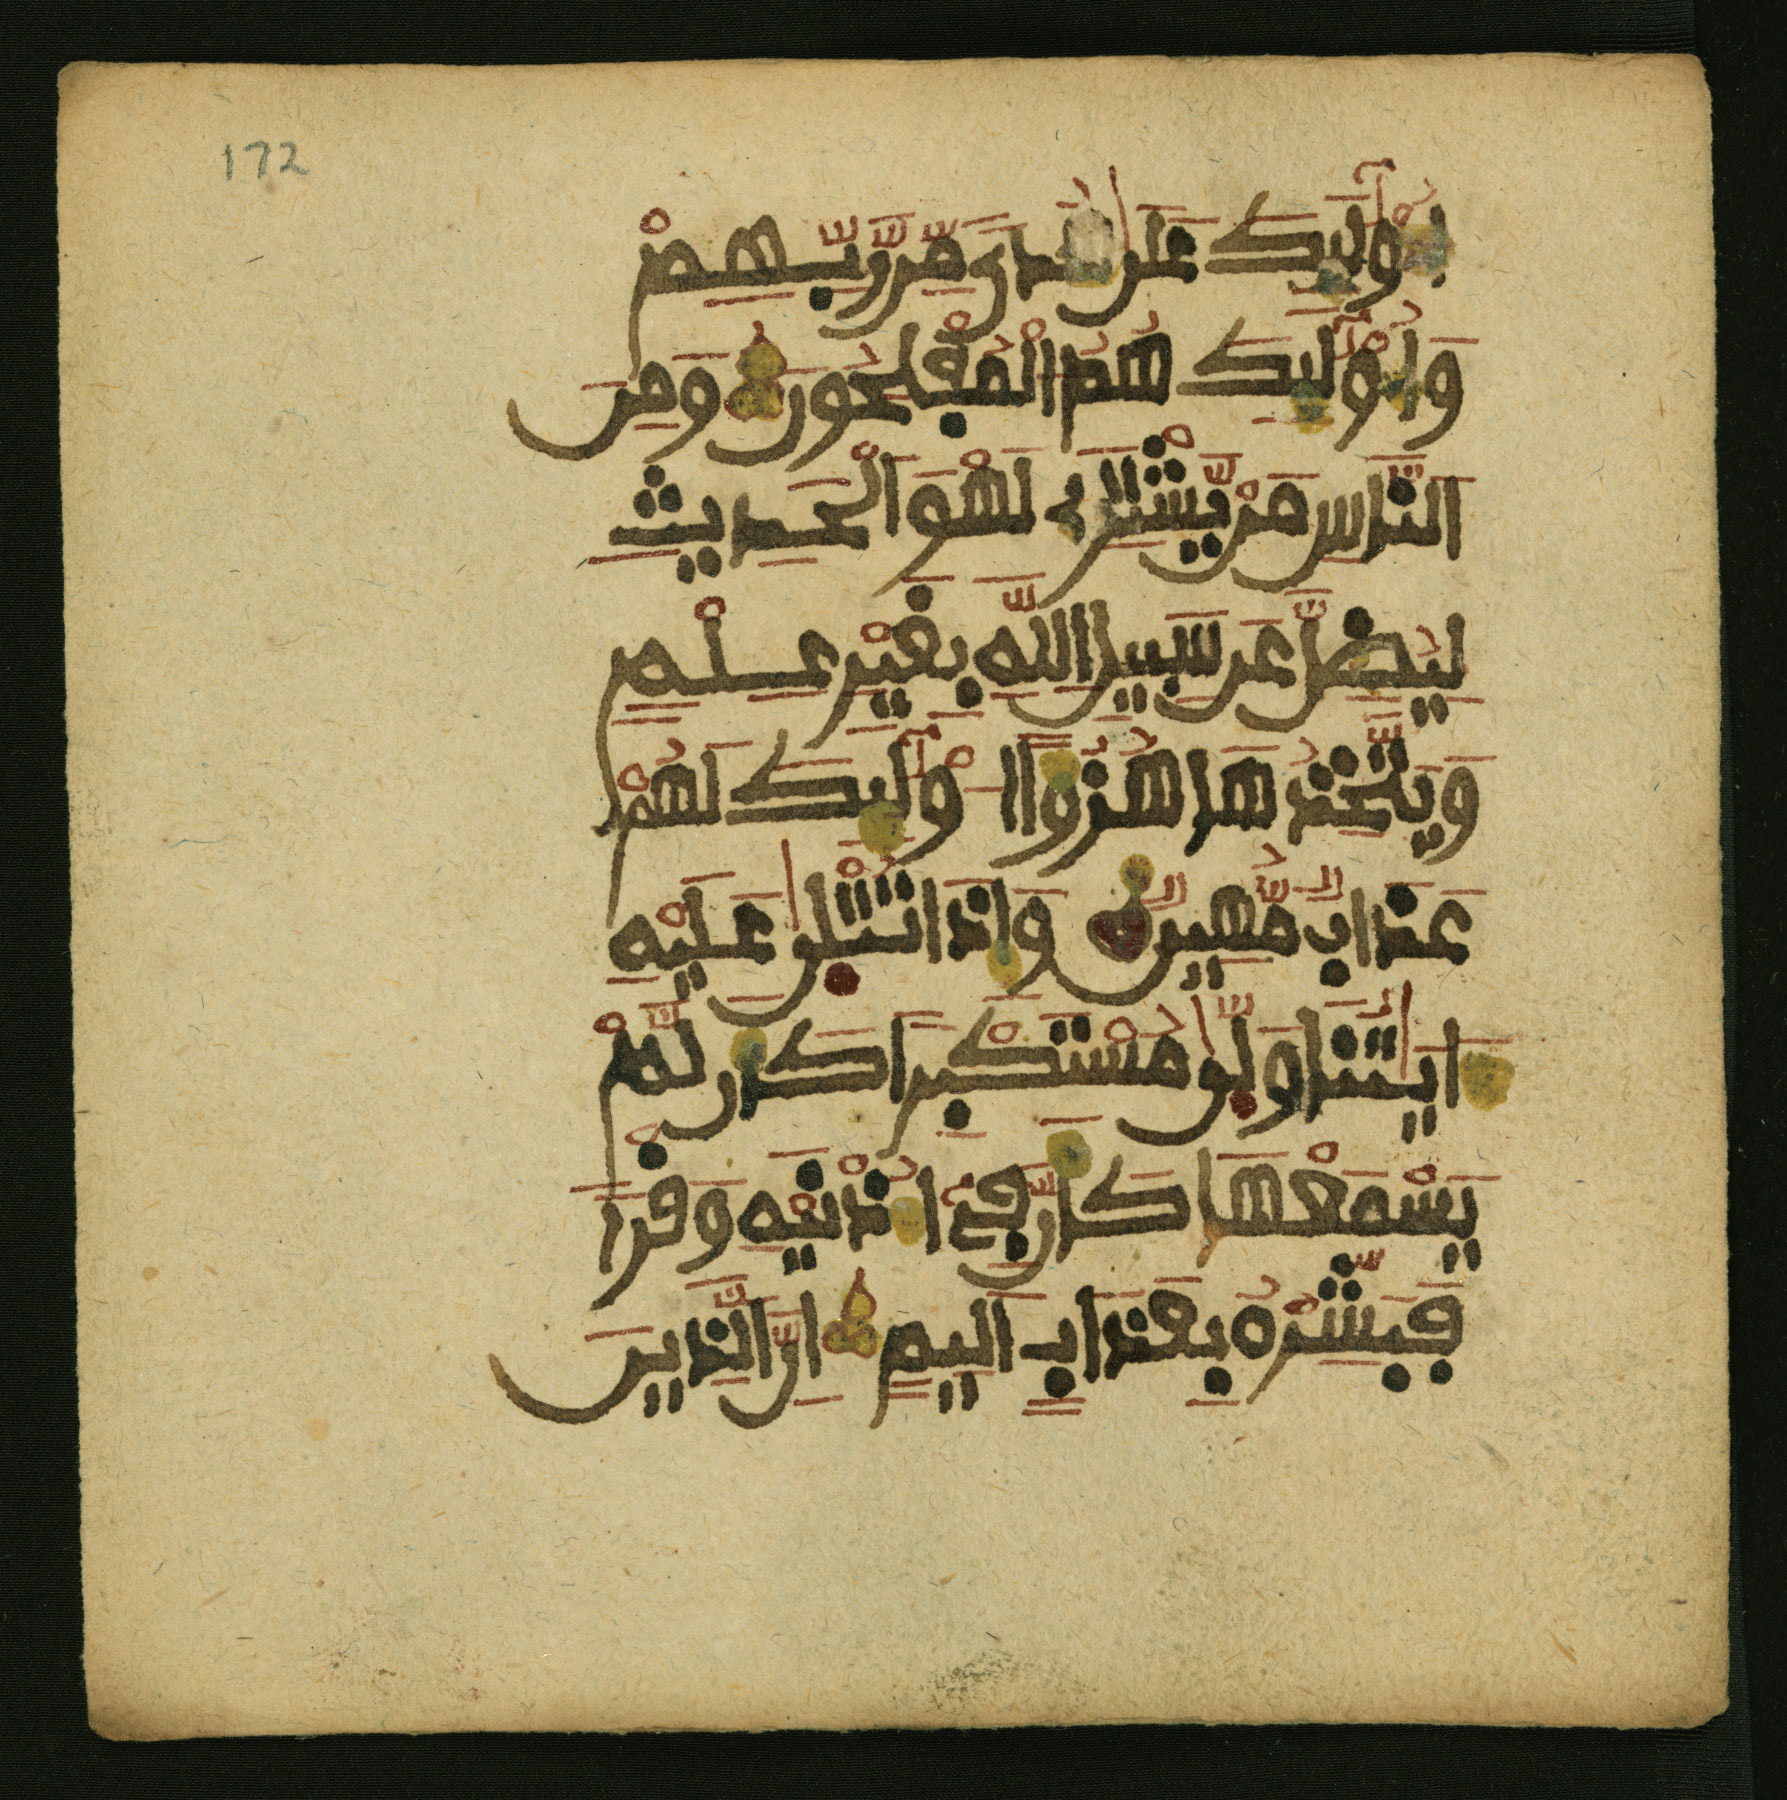 172
أُوْلَٰٓئِكَ عَلَىٰ هُدًى مِّن رَّبِّهِمْ
وَأُوْلَٰٓئِكَ هُمُ الْمُفْلِحُونَ وَمِنَ
النَّاسِ مَنْ يَّشْتَرِے لَهْوَ الْحَدِيثِ
لِيُضِلَّ عَن سَبِيلِ اللَّهِ بِغَيْرِ عِلْمٍ
وَيَتَّخِذُهَا هُزُوًا اوْلَٰٓئِكَ لَهُمْ
عَذَابٌ مُّهِينٌ وَإِذَا تُتْلَىٰ عَلَيْهِ
ءَايَٰتُنَا وَلَّىٰ مُسْتَكْبِرًا كَأَن لَّمْ
يَسْمَعْهَا كَأَنَّ فِےٓ أُذْنَيْهِ وَقْرًا
فَبَشِّرْهُ بِعَذَابٍ اَلِيمٍ إِنَّ الَّذِينَ